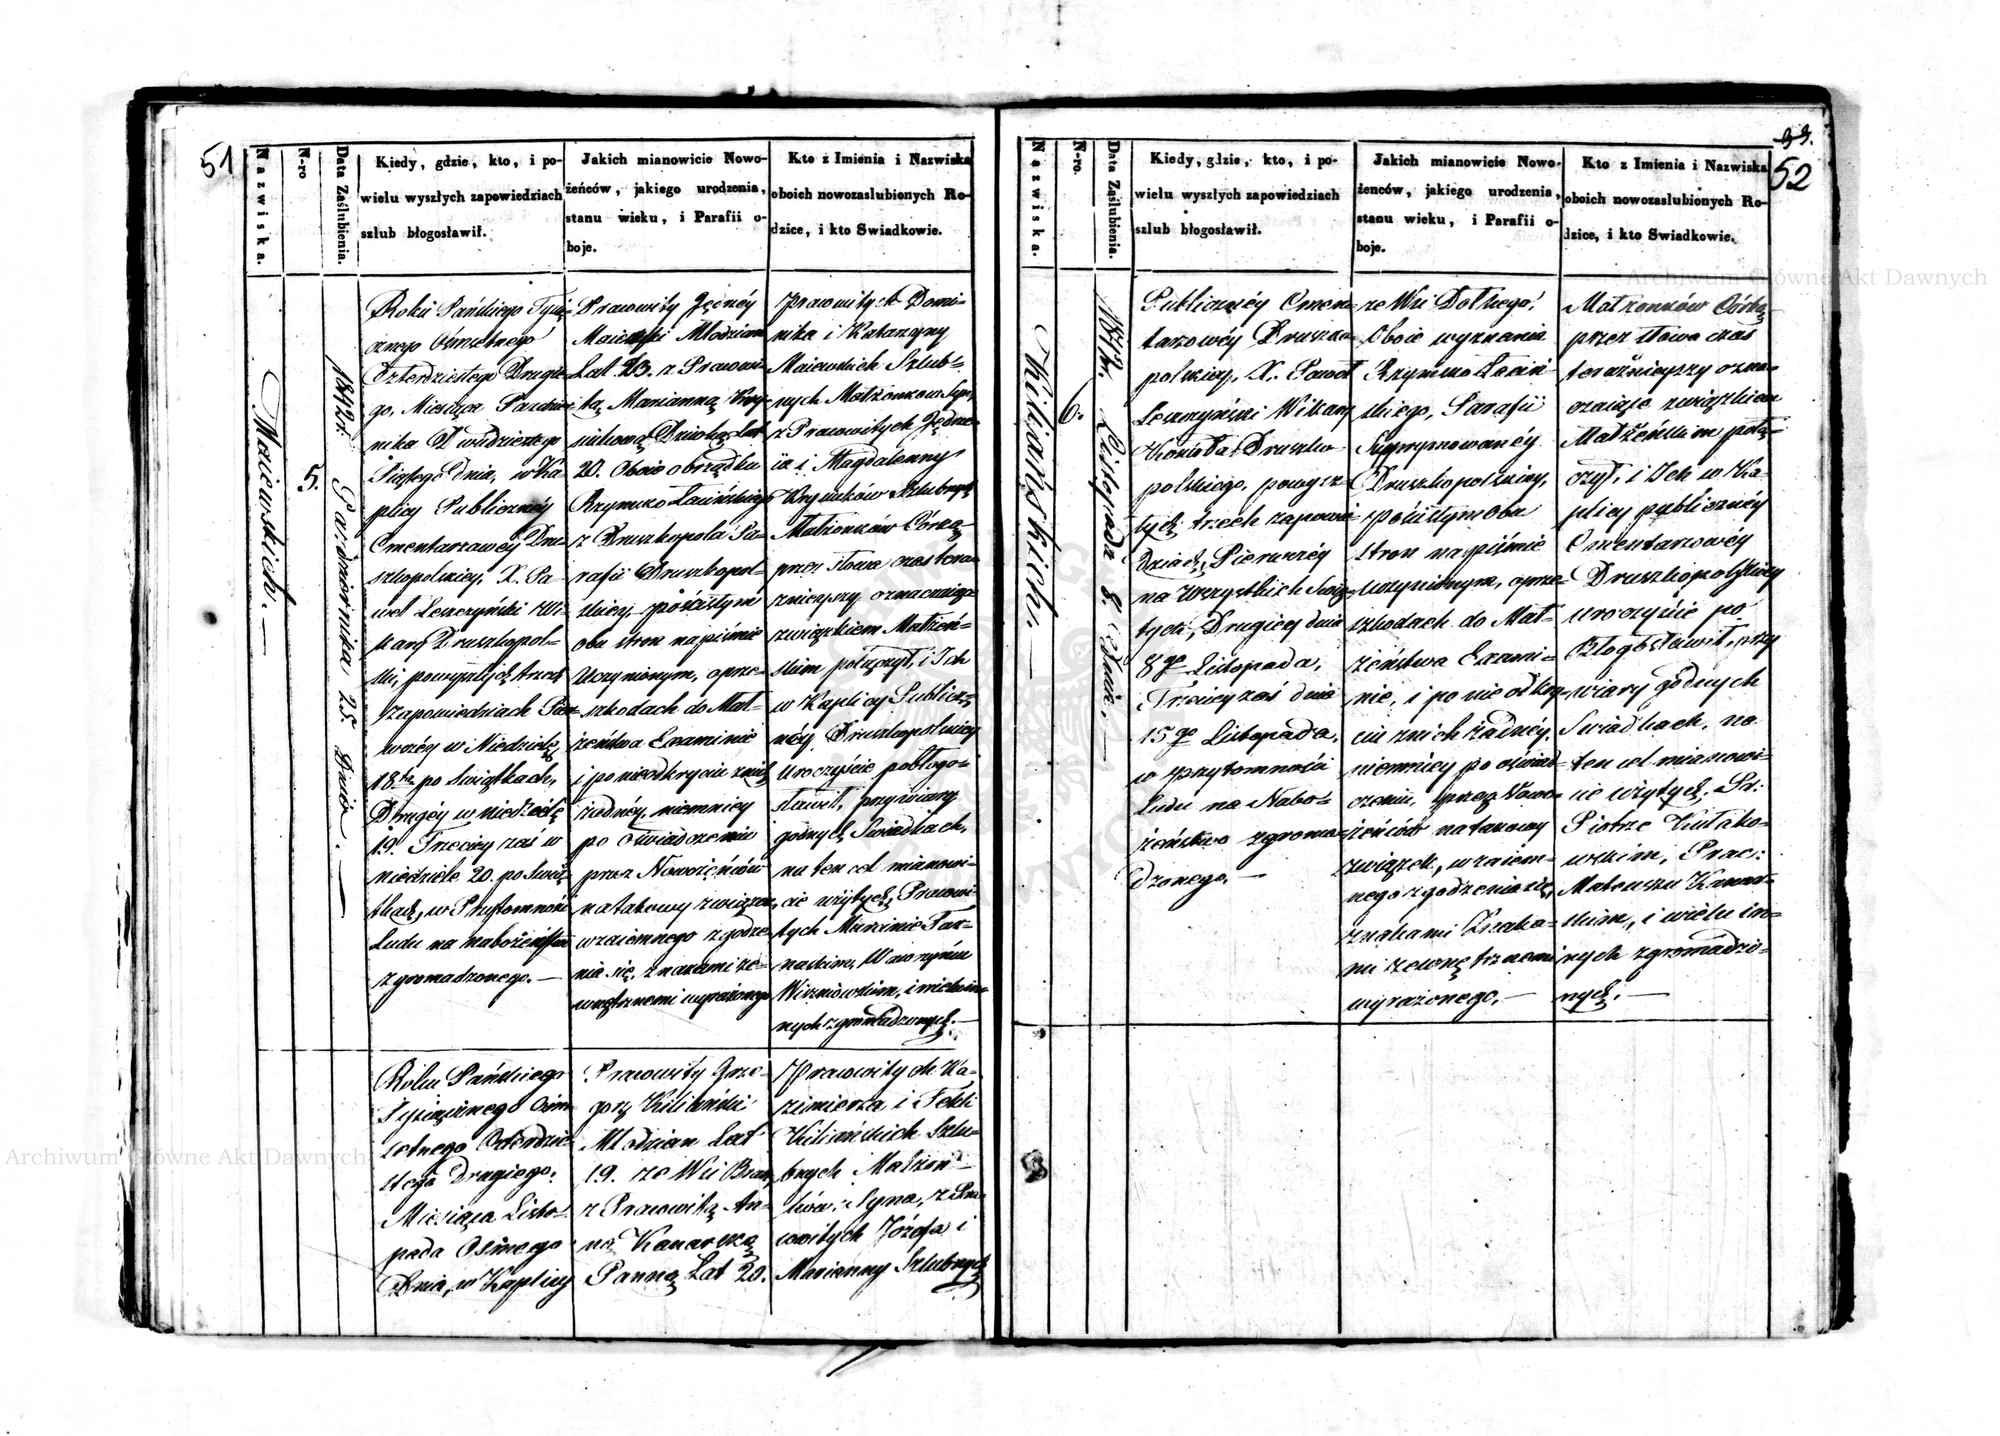 51
Nazwiska.
N-ro
Data Zaślubienia.
Kiedy, gdzie, kto, i po-
wielu wyszłych zapowiedziach
szlub błogosławił.
Jakich mianowicie Nowo-
żeńców, jakiego urodzenia,
stanu wieku, i Parafii o-
boje.
Kto z Imienia i Nazwiska
oboich nowozaslubionych Ro-
dzice, i kto Swiadkowie.
Maiewskich. —
5.
1842r. Pazdziernika 25. Dnia. —
Roku Pańskiego Tysią-
cznego Ośmsetnego
Czterdziestego Drugie-
go, Miesiąca Pazdzier-
nika Dwudziestego
Piątego Dnia, w Ka-
plicy Publicznéy
Cmentarzowéy Dru-
szkopolskiey, X. Pa-
weł Leszczyński Wi-
kary Druszkopol-
ski, powyszłych trzech
Zapowiedziach Pier-
wszéy w Niedzielę
18tą po Swiątkach,
Drugiéy w niedzielę
19. Trzeciey zaś w
niedziele 20. po Swią-
tkach, w Przytomności
Ludu na nabożeństwo
zgromadzonego. —
Prawowity Jędrzéy
Maiewski Młodzian
Lat 23. z Prawowi-
tą Marianną Kry-
siukową Dziewką Lat
20. Oboie obrządku
Rzymsko Łacińskiego
z Druszkopola Pa-
rafii Druszkopol-
skiey, pościstym
obu stron na piśmie
Uczynionym, oprze-
szkodach do Mał-
żeństwa Examinie
i po nieodkryciu z nich
żadnéy, niemniey
po oświadczeniu
przez Nowożeńców
na takowy związek
wzaiemnego zgodze-
nia się, znakami ze-
wnętrznemi wyrażonego
Prawowitych Domi-
nika i Katarzyny
Maiewskich Szlub-
nych Małżonków Syna,
z Prawowitych Jędrze-
ia i Magdalenny
Krysiuków Szlubnych
Małżonków Córką
przez słowa czas tera-
znieyszy oznaczaiące
związkiem Małżeń-
skim połączył, i Ich
w Kaplicy Publicz-
néy Druszkopolskiey
Uroczyście pobłogo-
sławił, przy wiary
godnych Swiadkach,
na ten cel mianowi-
cie użytych, Prawowi-
tych Marcinie Tar-
naskim, Wawrzyńcu
Wiszniowskim, i wielu in-
nych zgromadzonych. —
Roku Pańskiego
Tysiącznego Ośm-
setnego Czterdzie-
stego Drugiego,
Miesiąca Listo-
pada Osmego
Dnia, w Kaplicy
Prawowity Grze-
gorz Kiliański
Młodzian Lat
19. ze Wsi
z Prawowitą An-
ną Kanarską
Panną Lat 20.
Prawowitych Ka-
zimierza i Tekli
Kiliańskich Szlu-
bnych Małżon-
ków Syna, z Pra-
wowitych Józefa i
Marianny Szlubnych
33.
52
Nazwiska.
N-ro.
Data Zaślubienia.
Kiedy, gdzie, kto, i po-
wielu wyszłych zapowiedziach
szlub błogosławił.
Jakich mianowicie Nowo-
żenców, jakiego urodzenia,
stanu wieku, i Parafii o-
boje.
Kto z Imienia i Nazwiska
oboich nowozaslubionych Ro-
dzice, i kto Swiadkowie.
Kiliańskich. —
6.
1842r. Listopada 8. Dnia. —
Publicznéy Cmen-
tarzowéy Druszko-
polskiey, X. Paweł
Leszczyński Wikary
Kościoła Druszko-
polskiego, powysz-
łych trzech zapowie-
dziach, Pierwszéy
na Wszystkich Swię-
tych, Drugiey dnia
8go Listopada,
Trzeciey zaś dnia
15go Listopada,
w przytomności
Ludu na Nabo-
żeństwo zgroma-
dzonego. —
ze Wsi
Oboie wyznania
Rzymsko Łaciń-
skiego, Parafii
Druszkopolskiey,
pościstym obu
stron na piśmie
uczynionym, oprze-
szkodach do Mał-
żeństwa Exami-
nie, i po nie odkry-
ciu z nich żadnéy,
niemniey po oświad-
czeniu, przez Nowo-
żeńców na takowy
związek, wzaiem-
nego zgodzenia się,
znakami
mi zewnętrznemi
wyrażonego. —
Małżonków Córką
przez słowa czas
teraźnieyszy ozna-
czaiące związkiem
Małżeńskim połą-
czył, i Ich w Ka-
plicy publicznéy
Cmentarzowéy
Druszkopolskiey
uroczyście po
błogosławił, przy
wiary godnych
Swiadkach, na
ten cel mianowi-
cie użytych, Sz:
Piotrze Kułako-
wskim, Prac:
Mateuszu Kanar-
skim, i wielu in-
nych zgromadzo-
nych. —
Archiwum Główne Akt Dawnych
Archiwum Główne Akt Dawnych